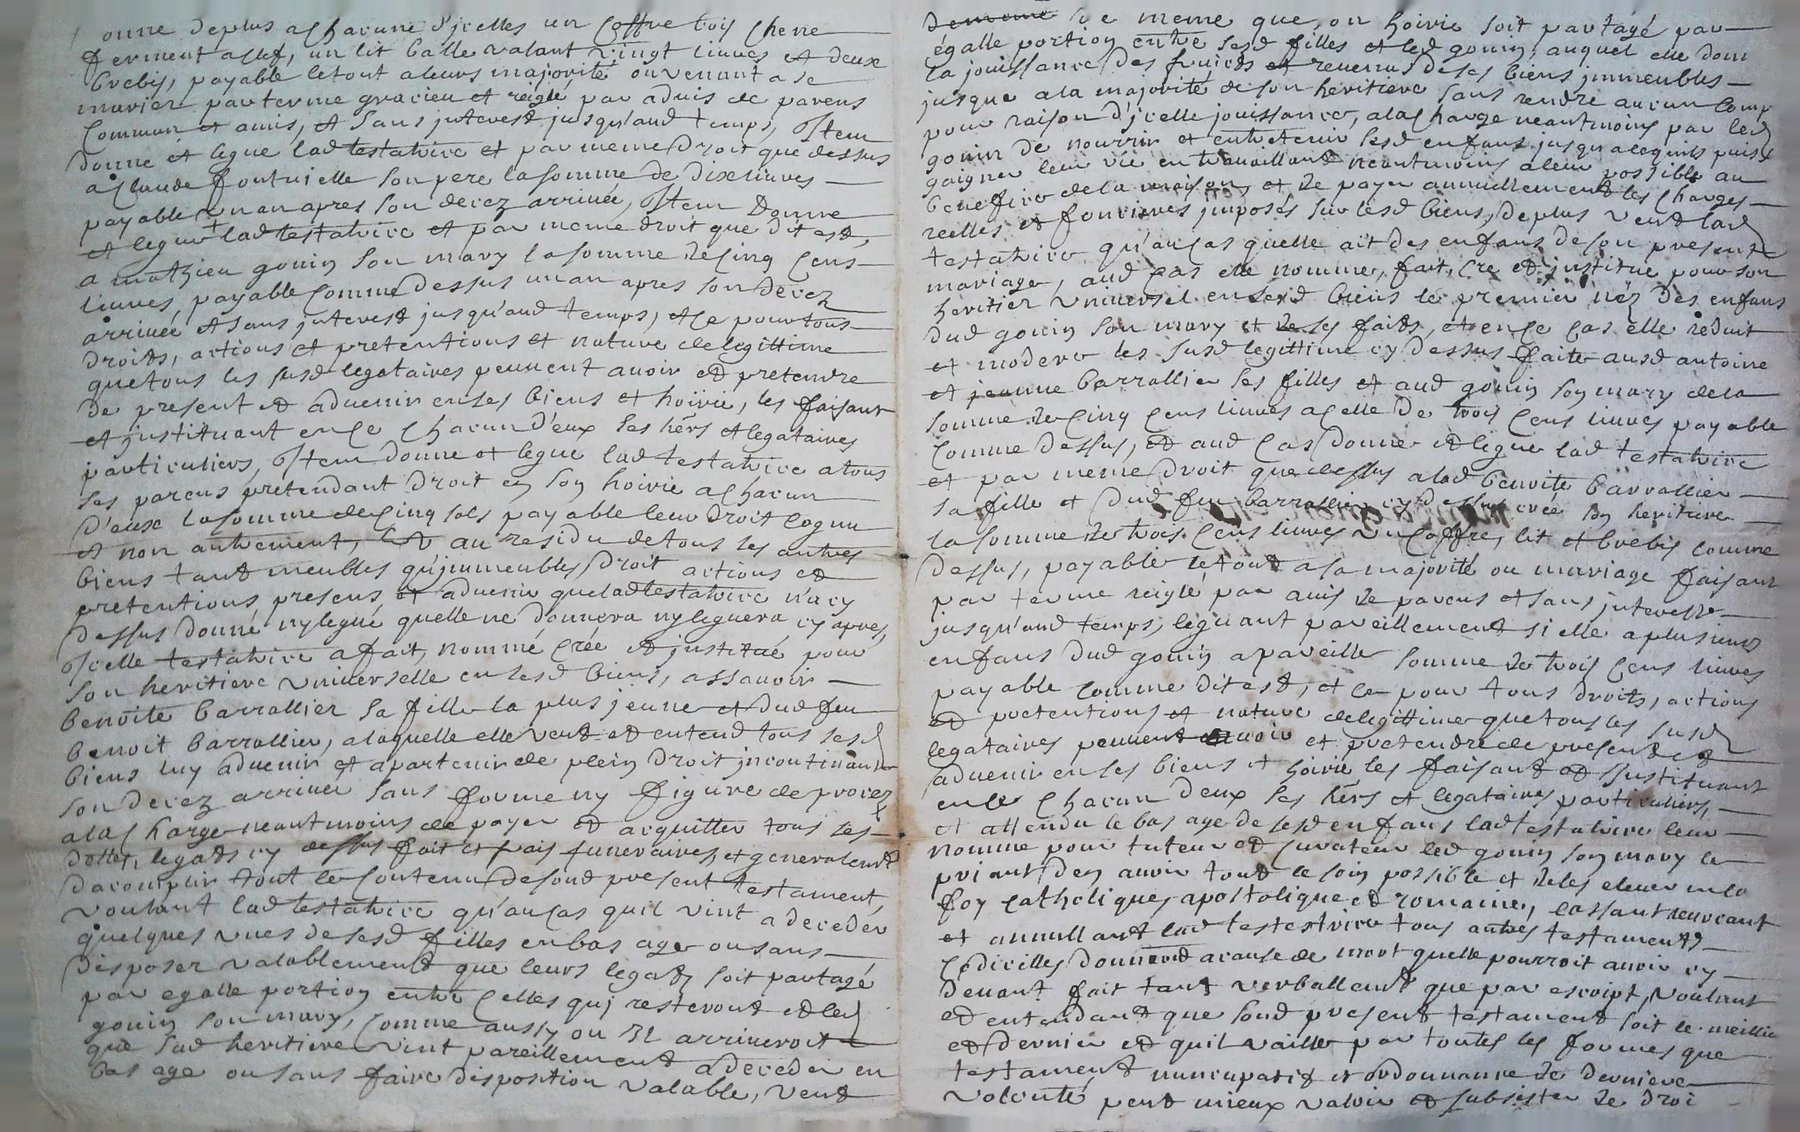 onne deplus a chacune d'jcelles un coffre bois chene
ferment a clef, un lit balle valant vingt liures et deux
brebis, payable le tout a leurs majorité ou venant a se
marier par terme gracieu et reiglé par aduis de parens
commun et amis, et sans jnterest jusqu'aud temps, Jtem
donne et legue lad testatrice et par meme droit que dessus
a Claude fontuielle son pere la somme de dix liures
payable un an apres son decez arriuée, Jtem donne
et legue lad testatrice et par meme droit que dit est,
a mathieu gouin son mary la somme de cinq cens
liures, payable comme dessus un an apres son decez
arriuée et sans jnterest jusqu'aud temps, et ce pour tous
droits, actions et pretentions et nature de legittime
que tous les susd legataires peuuent auoir et pretendre
de present et aduenir en ses biens et hoirie, les faisant
et jnstituant en ce chacun d'eux ses hers et legataires
particuliers, Jtem donne et legue lad testatrice a tous
ses parens pretendant droit en son hoirie a chacun
d'eux la somme de cinq sols payable leur droit cognu
et non autrement, Et au residu de tous ses autres
biens tant meubles qu'jmmeubles, droit actions et
pretentions presens et aduenir que lad testatrice n'a cy
dessus donné ny legué quelle ne donnera ny leguera cy apres,
Jcelle testatrice a fait, nommé crée et jnstitué pour
son heritiere vniuerselle en sesd biens, assauoir
benoite barrallier sa fille la plus jeune et dud feu
benoit barrallier, a laquelle elle veut et entend tous sesd
biens luy aduenir et apartenir de plein droit jncontinant
son decez arriuer sans forme ny figure de procez
a la charge neantmoins de payer et acquitter tous ses
dettes, legats cy dessus fait et frais funeraires et generalemt
d'acomplir tout le contenu de sond present testament,
voulant lad testatrice qu'au cas quil vint a deceder
quelques vnes de sesd filles en bas age ou sans
disposer valablement que leurs legatz soit partagé
par egalle portion entre celles quj resteront et led
gouin son mary, comme aussy ou jl arriueroit
que sad heritiere vint pareillement a deceder en
bas age ou sans faire disposition valable, veut
de meme que son hoirie soit partagé par
égalle portion entre sesd filles et led gouin, auquel elle don
la jouissance des fruicts et reuenus de ses biens jmmeubles
jusque a la majorité de son heritiere sans rendre aucun comp
pour raison d'jcelle jouissance, a la charge neantmoins par led
gouin de nourrir et entretenir sesd enfans jusqu'a ce quils puiss
gaigner leur vie en trauaillant neantmoins a leur possible au
benefice de la maison, et de payer annuellement les charges
reelles et foncieres jmposés sur lesd biens, deplus veut lad
testatrice qu'au cas quelle ait des enfans de son present
mariage, aud cas elle nomme, fait, cre et jnstitue pour son
heritier vniuersel en sesd biens le premier néz des enfans
dud gouin son mary et de ses faits, et en ce cas elle reduit
et modere les susd legittime cy dessus faite ausd antoine
et jeanne barrallier ses filles et aud gouin son mary de la
somme de cinq cens liures a celle de trois cens liures payable
comme dessus, et aud cas donne et legue lad testatrice
et par meme droit que dessus a lad benoite barrallier
sa fille et dud feu barrallier cy dessus crée son heritiere
la somme de trois cens liures un coffre, lit et brebis comme
dessus, payable le tout a sa majorité ou mariage faisant
par terme reiglé par auis de parens et sans jnterest
jusqu'aud temps, leguant pareillement si elle a plusieurs
enfans dud gouin a pareille somme de trois cens liures
payable comme dit est, et ce pour tous droits, actions
et pretentions et nature de legittime que tous les susd
legataires peuuent auoir et pretendre de present et
aduenir en ses biens et hoirie les faisant et jnstituant
en ce chacun deux ses hers et legataires particuliers,
et attendu le bas age de sesd enfans lad testatrice leur
nomme pour tuteur et curateur led gouin son mary le
priant d'en auoir tout le soin possible et de les eleuer en la
foy catholique, apostolique et romaine, cassant reuocant
et annullant lad testatrice tous autres testaments
codicilles donnené a cause de mort quelle pourroit auoir cy
deuant fait tant verballemt que par escript, voulant
et entendant que sond present testament soit le meilleu
et dernier et quil vaille par toutes les formes que
testament nuncupatif et ordonnance de derniere
volonté peut mieux valoir et subsister de droi